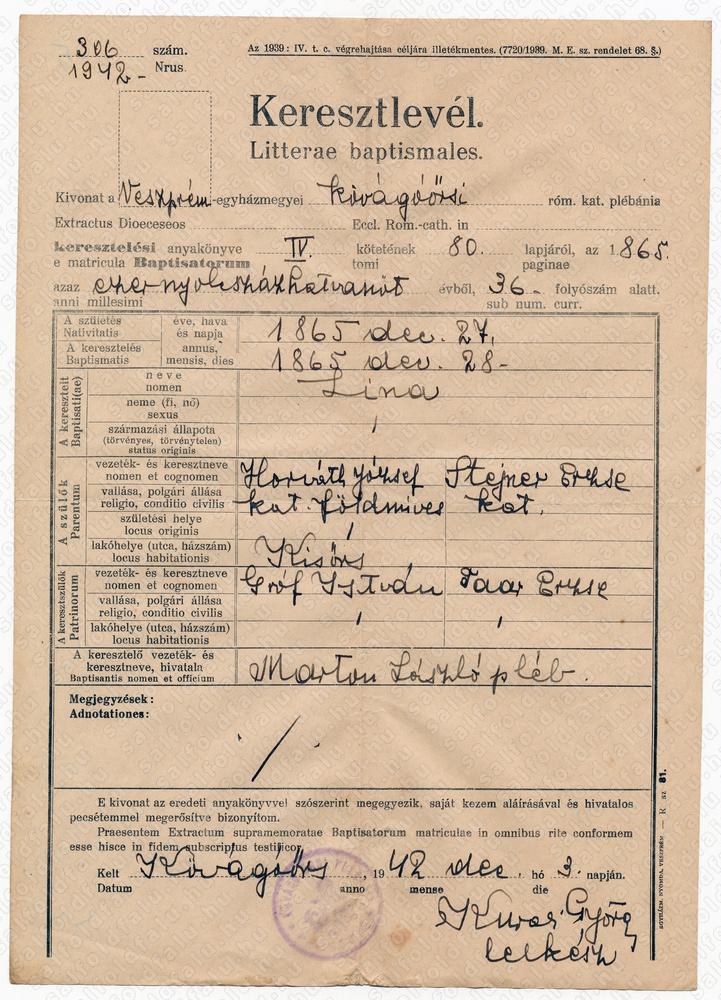 306 szám.
1942- Nrus
Az 1939: IV. t. c. végrehajtása céljára illetékmentes. (7720/1939. M. E. sz. rendelet 68. §.)
Keresztlevél.
Litterae baptismales.
Kivonat a Veszprém-egyházmegyei kővágóőrsi róm. kat. plébánia
Extractus Dioeceseos Eccl. Rom.-cath. in
keresztelési anyakönyve IV. kötetének 80. lapjáról, az 1865.
e matricula Baptisatorum tomi paginae
azaz ezernyolcszázhatvanöt évből, 36- folyószám alatt.
anni millesimi sub num. curr.
A születés éve, hava 1865 dec. 27.
Nativitatis és napja
A keresztelés annus, 1865 dec. 28-
Baptismatis mensis, dies
A kereszteit
Baptisati(ae)
neve Lina
nomen
neme (fi, nő)
sexus
származási állapota
(törvényes, törvénytelen)
status originis
A szülők
Parentum
vezeték- és keresztneve Horváth József Stejner Erzse
nomen et cognomen
vallása, polgári állása kat. földmíves kat.
religio, conditio civilis
születési helye
locus originis
lakóhelye (utca, házszám) Kisörs
locus habitationis
A keresztszülők
Patrinorum
vezeték- és keresztneve Gróf István Taar Erzse
nomen et cognomen
vallása, polgári állása
religio, conditio civilis
lakóhelye (utca, házszám)
locus habitationis
A keresztelő vezeték- és Marton László pléb.
keresztneve, hivatala
Baptisantis nomen et officium
Megjegyzések:
Adnotationes:
E kivonat az eredeti anyakönyvvel szószerint megegyezik, saját kezem aláírásával és hivatalos
pecsétemmel megerősítve bizonyítom.
Praesentem Extractum supramemoratae Baptisatorum matriculae in omnibus rite conformem
esse hisce in fidem subscriptus testificor.
Kelt Kővágóörs, 1942 dec. hó 3. napján.
Datum anno mense die
György
lelkész
NYOMDA, VESZPRÉM — K sz 81.